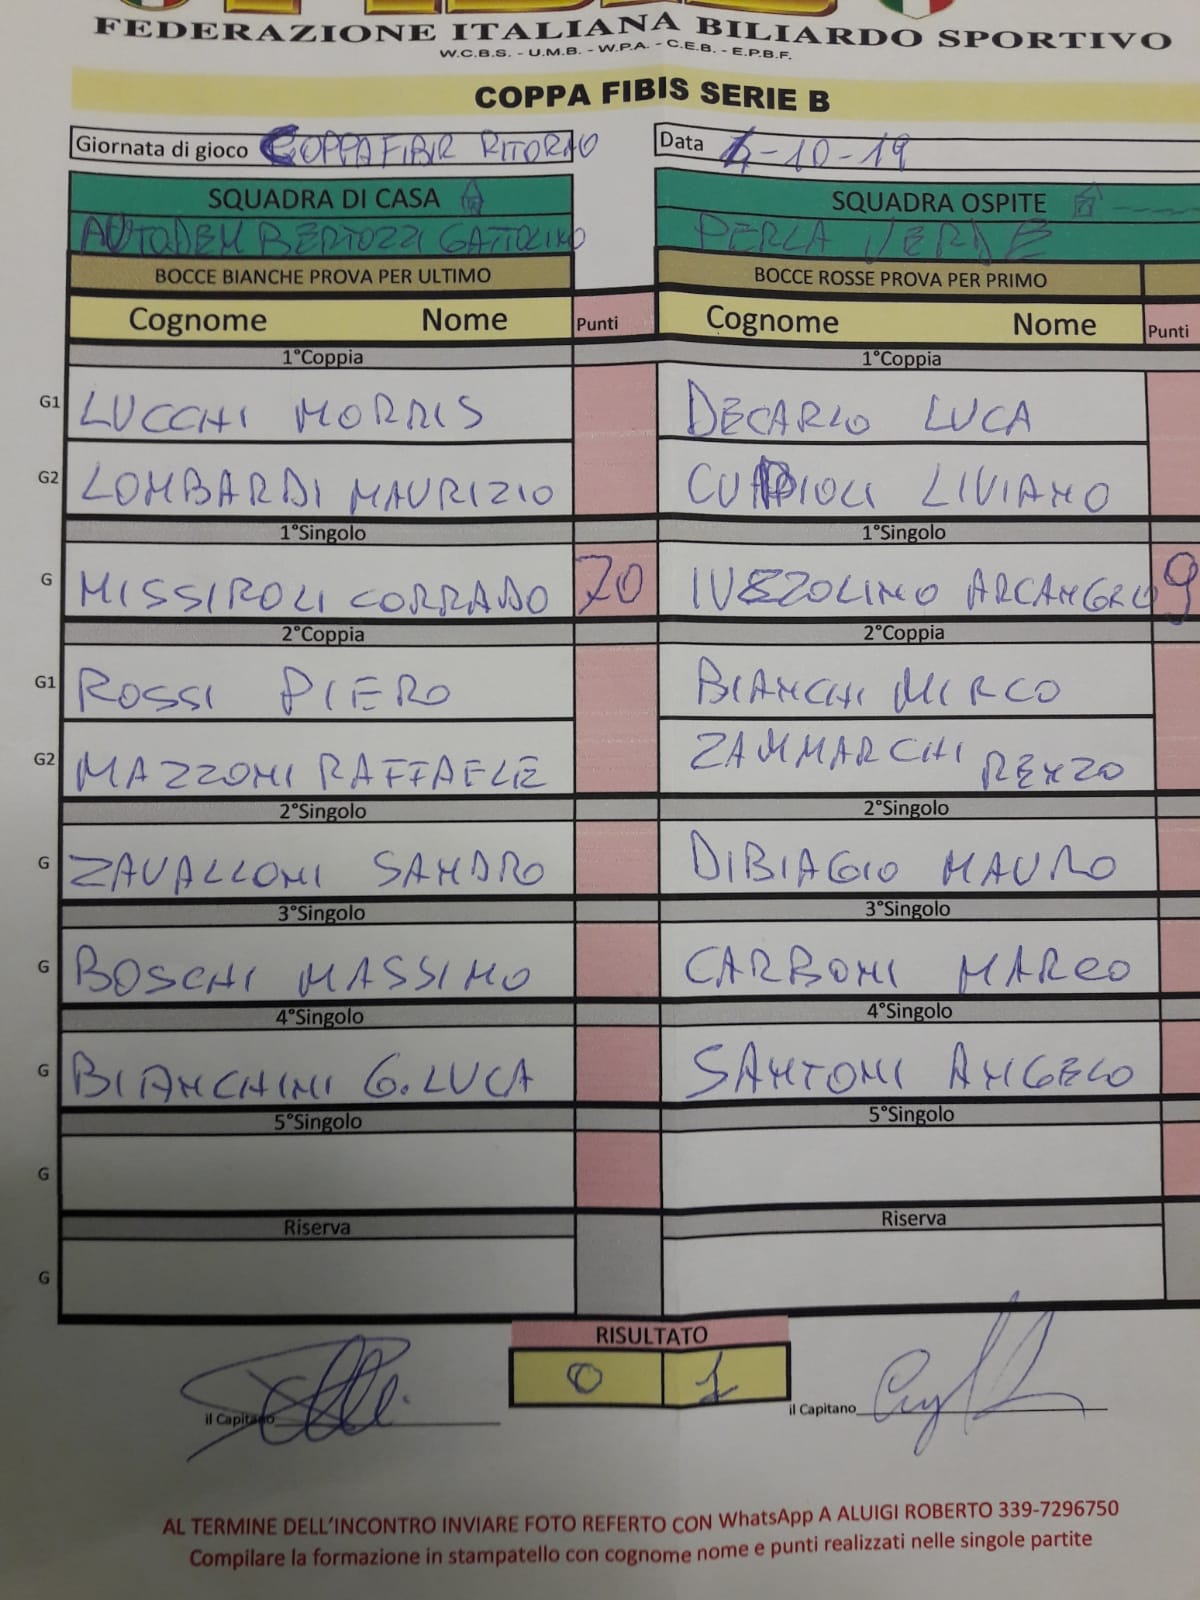 FEDERAZIONE ITALIANA BILIARDO SPORTIVO
W.C.B.S. - U.M.B. - W.P.A. - C.E.B. - E.P.B.F.
COPPA FIBIS SERIE B
Giornata di gioco COPPA FIBIR RITORNO Data -10-19
SQUADRA DI CASA SQUADRA OSPITE
AUTODEM BERTOZZI GATTOLINO PERLA VERDE
BOCCE BIANCHE PROVA PER ULTIMO BOCCE ROSSE PROVA PER PRIMO
Cognome Nome Punti Cognome Nome Punti
1°Coppia 1°Coppia
G1 LUCCHI MORRIS DECARLO LUCA
G2 LOMBARDI MAURIZIO LIVIANO
1°Singolo 1°Singolo
G MISSIROLI CORRADO 70 IUZZOLINO ARCANGELO 9
2°Coppia 2°Coppia
G1 ROSSI PIERO BIANCHI MIRCO
G2 MAZZONI RAFFAELE ZAMMARCHI RENZO
2°Singolo 2°Singolo
G ZAVALLONI SANDRO DIBIAGIO MAURO
3°Singolo 3°Singolo
G BOSCHI MASSIMO CARBONI MARCO
4°Singolo 4°Singolo
G BIANCHINI G.LUCA SANTONI ANGELO
5°Singolo 5°Singolo
G
Riserva Riserva
G
RISULTATO
0 1
il Capitano il Capitano
AL TERMINE DELL'INCONTRO INVIARE FOTO REFERTO CON WhatsApp A ALUIGI ROBERTO 339-7296750
Compilare la formazione in stampatello con cognome nome e punti realizzati nelle singole partite